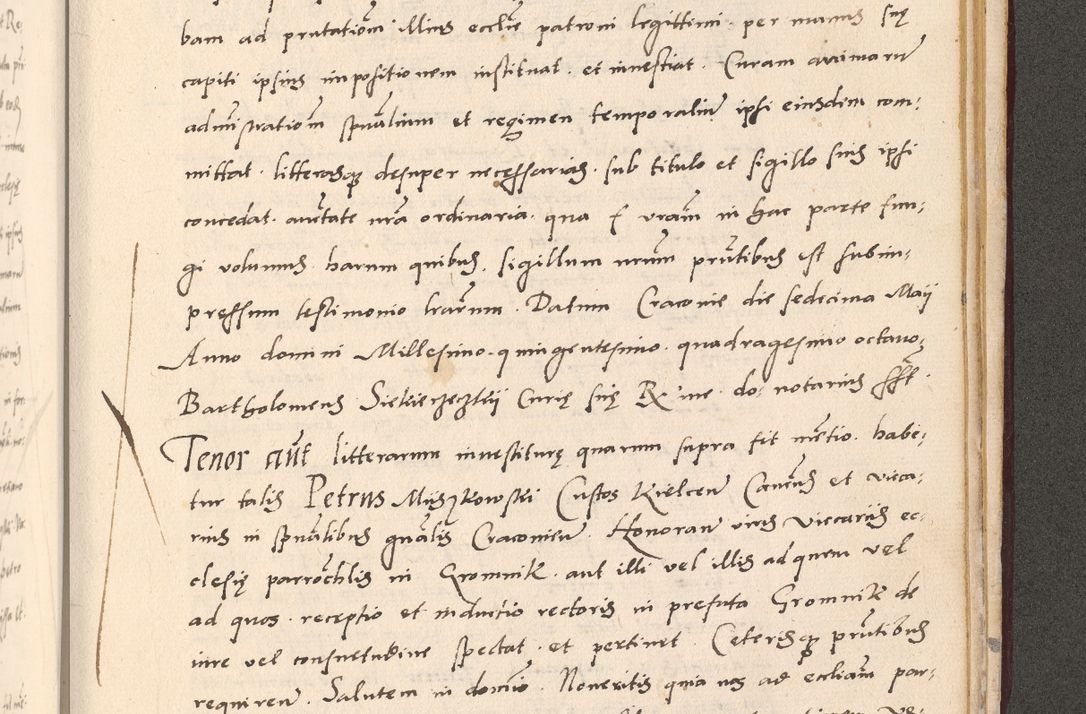 bam ad pñtatiom illius ecclie patroni legittimi per manus suę
capiti ipsius impositionem instituat. et inuestiat. Curam animarũ
admistratiom spũalium et regimen temporaliũ ipsi eiusdem com-
mittat. litterasqʒ desuper necessarias. sub titulo et sigillo suis ipsi
concedat. auctate nrã ordinaria. qua f vram in hac parte fun-
gi volumus. harum quibus. sigillum nrum pñtibus est subim-
pressum testimonio lrarum. Datum Cracouie die sedecima Maij
Anno domini Millesimo. quingentesimo. quadragesimo octauo.
Bartholomeus Curię suę R. me. do. notarius sst.
Tenor aũt litterarum inuestiturę quarum supra fit mẽtio. habe-
tur talis Petrus Miiszkowski Custos Kielceñ Canucus et vica-
rius in spũalibus gñalis Cracouieñ. Honorañ viris viccariis ec-
clesię parrochlis in Gromnik. aut illi vel illis ad quem vel
ad quos. receptio et inductio rectoris in prefata Gromnik de
iure vel consuetudine spectat. et pertinet. Ceterisqʒ pñtibus
requireñ. Salutem in domio. Noueritis quia nos ad eccliam par-